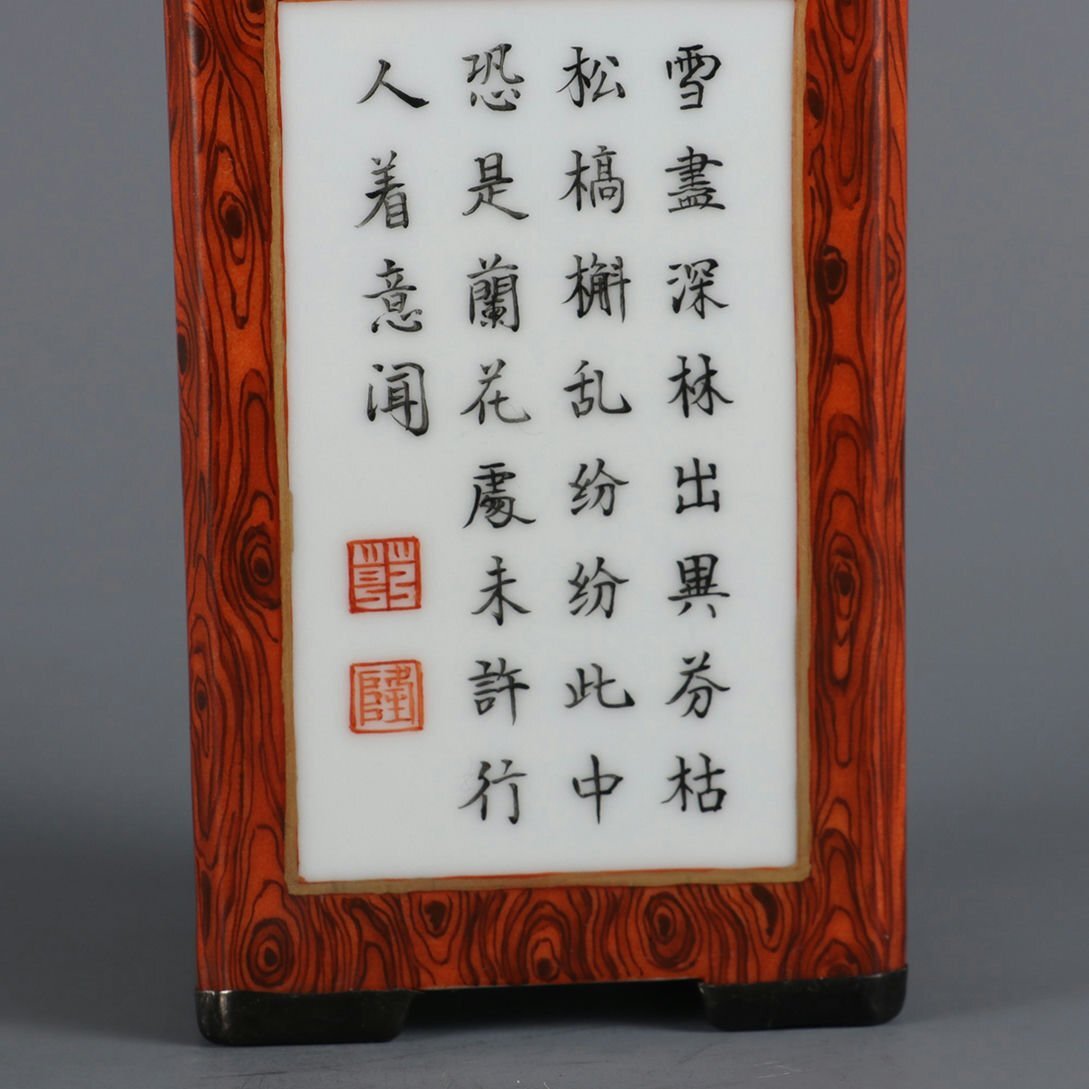 雪盡深林出異芬枯
松槁槲乱纷纷此中
恐是蘭花處未許行
人着意闻
乾
隆